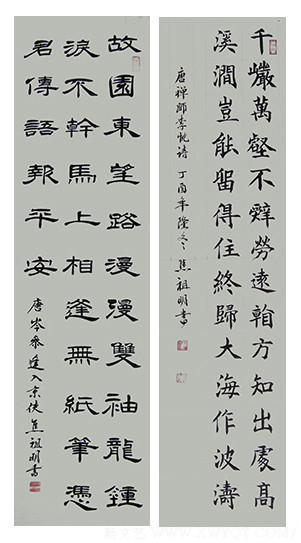 千巖萬壑不辤勞遠看方知出處高
溪澗豈能留得住終歸大海作波濤
唐禅師李忱诗 丁酉年隆冬 焦祖明書
故園東望路漫漫雙袖龍鍾
淚不幹馬上相逢無紙筆憑
君傳語報平安
唐岑參逢入京使焦祖明書